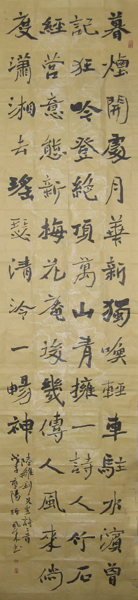 暮煙開處月華新獨喚輕車駐水濱曾
記狂吟登絕頂萬山青擁一詩人行石
經營意態新梅花庵後幾傳人風來倘
度瀟湘去瑤瑟清泠一暢神